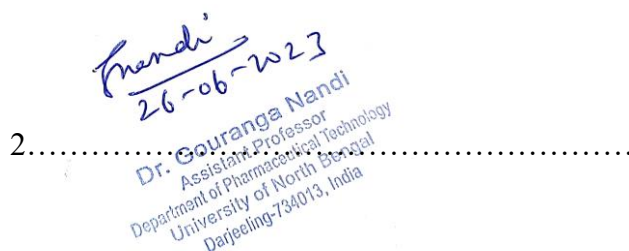 Gnandi
26-06-2023
2..........................................................................
Dr. Gouranga Nandi
Assistant Professor
Department of Pharmaceutical Technology
University of North Bengal
Darjeeling-734013, India